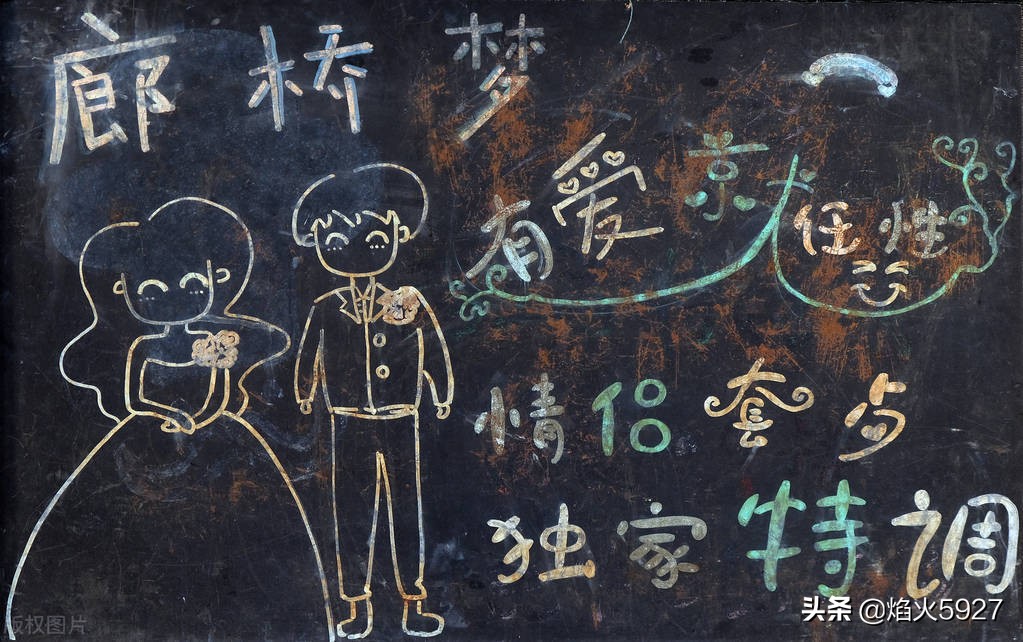 廊桥梦
有爱就任性
情侣套歺
独家特调
版权图片
头条 @焰火5927